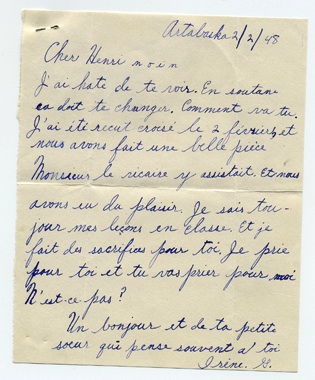 Artabaska 2/2/48
Cher Henri noin
J'ai hate de te voir. En soutane
ca doit te changer. Comment va tu.
J'ai été recut croisé le 2 février, et
nous avons fait une belle pièce
Monsieur le vicaire y assistait. Et nous
avons eu du plaisir. Je sais tou-
jour mes leçons en classe. Et je
fait des sacrifices pour toi. Je prie
pour toi et tu vas prier pour moi
N'est-ce pas?
Un bonjour et de ta petite
soeur qui pense souvent a toi
Irène. G.